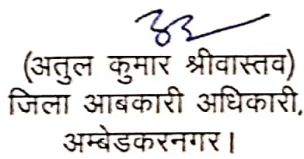 (अतुल कुमार श्रीवास्तव)
जिला आबकारी अधिकारी,
अम्बेडकरनगर।